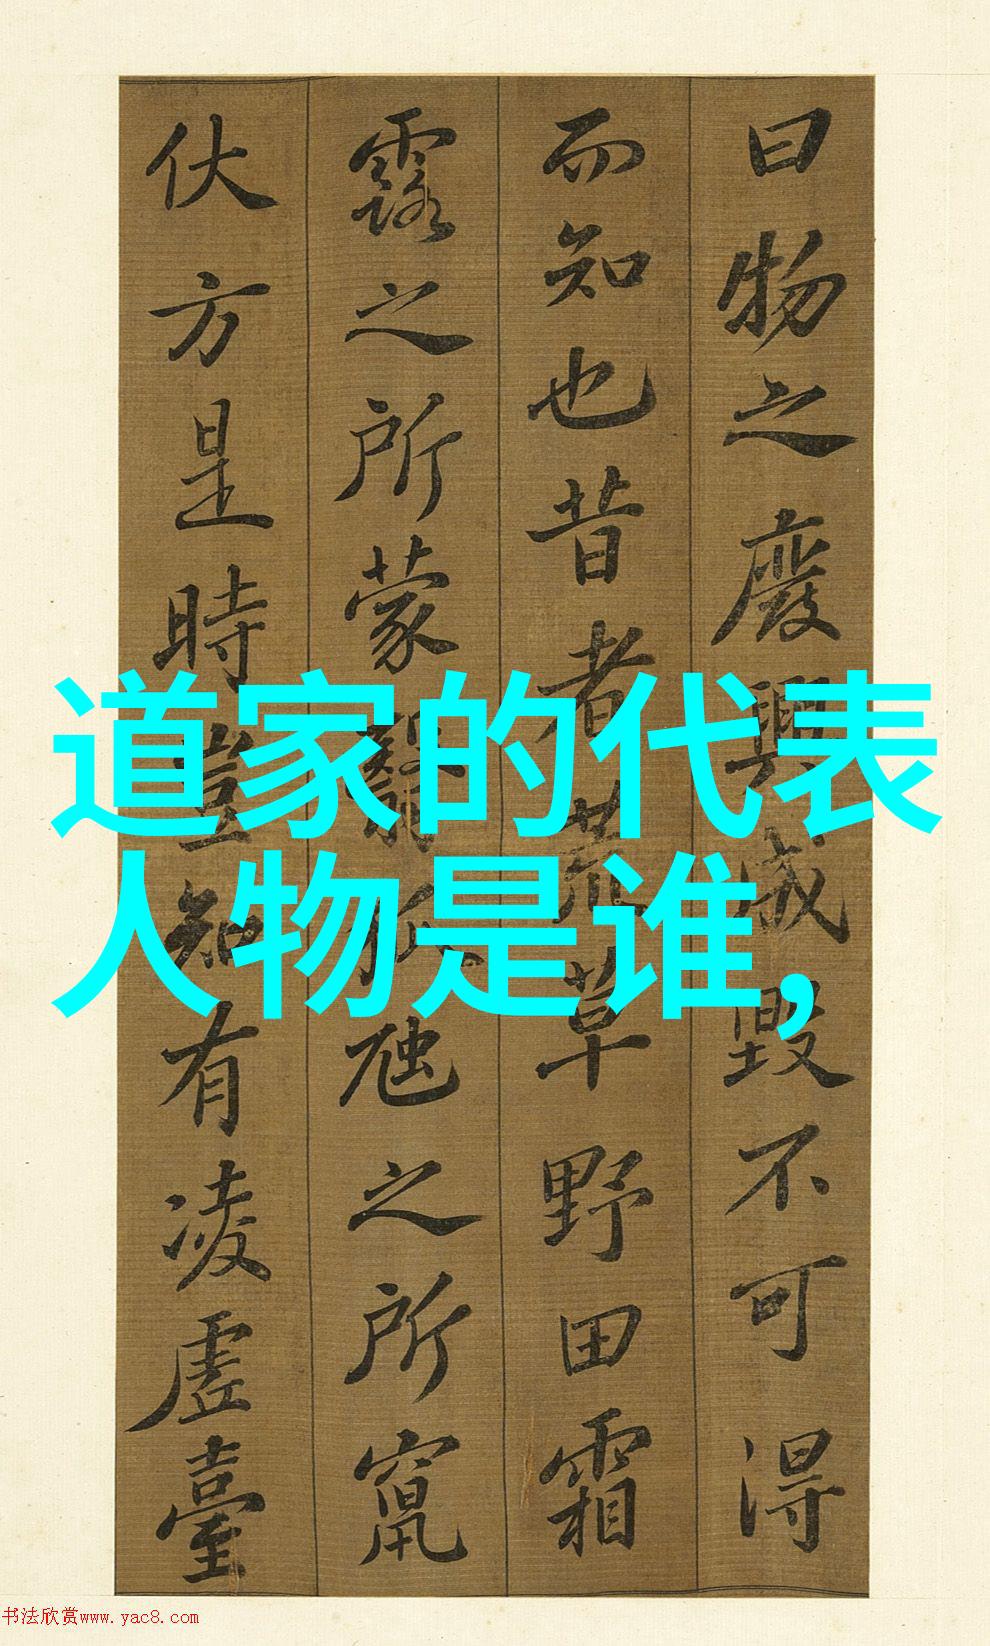 曰物之廢興成毀不可得
而知也昔者荒草野田霜
露之所蒙翳狐虺之所竄
伏方是時豈知有凌虛臺
道家的代表
人物是谁,
书法欣赏www.yac8.com